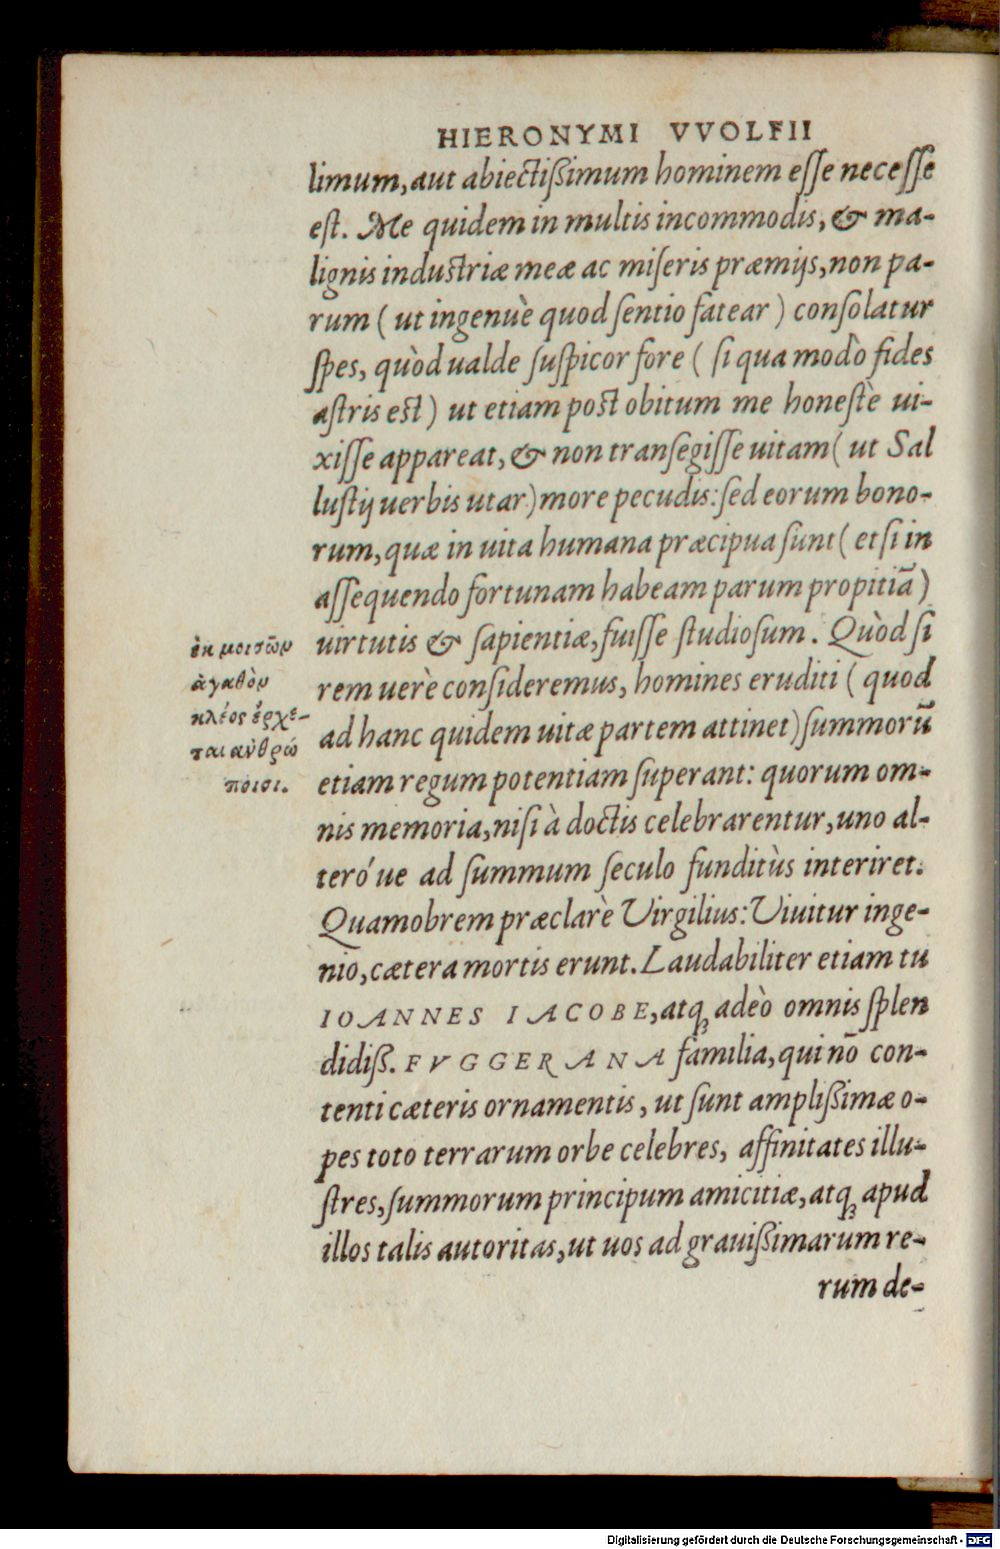 HIERONYMI VVOLFII
limum, aut abiectißimum hominem eſſe neceſſe
eſt. Me quidem in multis incommodis, & ma-
lignis induſtriæ meæ ac miſeris præmijs, non pa-
rum ( ut ingenuè quod ſentio fatear ) conſolatur
ſpes, quòd ualde ſuſpicor fore ( ſi qua modò fides
aſtris eſt ) ut etiam poſt obitum me honeſtè ui-
xiſſe appareat, & non tranſegiſſe uitam ( ut Sal
luſtij uerbis utar ) more pecudis: ſed eorum bono-
rum, quæ in uita humana præcipua ſunt ( etſi in
aſſequendo fortunam habeam parum propitiā )
uirtutis & ſapientiæ, fuiſſe ſtudioſum. Quòd ſi
rem uerè conſideremus, homines eruditi ( quod
ad hanc quidem uitæ partem attinet ) ſummorū
etiam regum potentiam ſuperant: quorum om-
nis memoria, niſi à doctis celebrarentur, uno al-
teróue ad ſummum ſeculo funditùs interiret.
Quamobrem præclarè Virgilius: Viuitur inge-
nio, cætera mortis erunt. Laudabiliter etiam tu
IOANNES IACOBE, atq; adeò omnis ſplen
didiß. FVGGERANA familia, qui nō con-
tenti cæteris ornamentis, ut ſunt amplißimæ o-
pes toto terrarum orbe celebres, affinitates illu-
ſtres, ſummorum principum amicitiæ, atq; apud
illos talis autoritas, ut uos ad grauißimarum re-
rum de-
ἐκ μοισῶν
ἀγαθὸν
κλέος ἔρχε-
ται ἀνθρώ
ποισι.
Digitalisierung gefördert durch die Deutsche Forschungsgemeinschaft - DFG